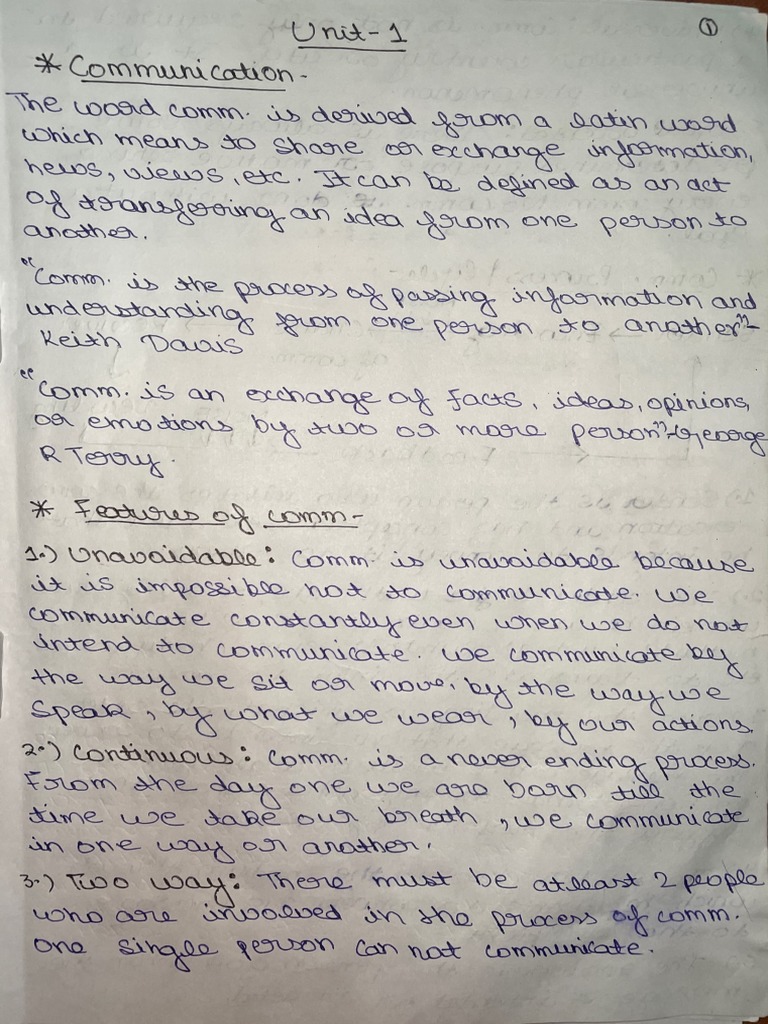 Unit-1
①
* Communication-
The word comm. is derived from a latin word
which means to share or exchange information,
news, views, etc. It can be defined as an act
of transferring an idea from one person to
another.
"Comm. is the process of passing information and
understanding from one person to another"-
Keith Davis
"Comm. is an exchange of facts, ideas, opinions,
or emotions by two or more person"-George
R Terry.
* Features of comm-
1.) Unavoidable: Comm. is unavoidable because
it is impossible not to communicate. We
communicate constantly even when we do not
intend to communicate. we communicate by
the way we sit or move, by the way we
speak, by what we wear, by our actions.
2.) Continuous: Comm. is a never ending process.
From the day one we are born till the
time we take our breath, we communicate
in one way or another.
3.) Two way: There must be atleast 2 people
who are involved in the process of comm.
one single person can not communicate.